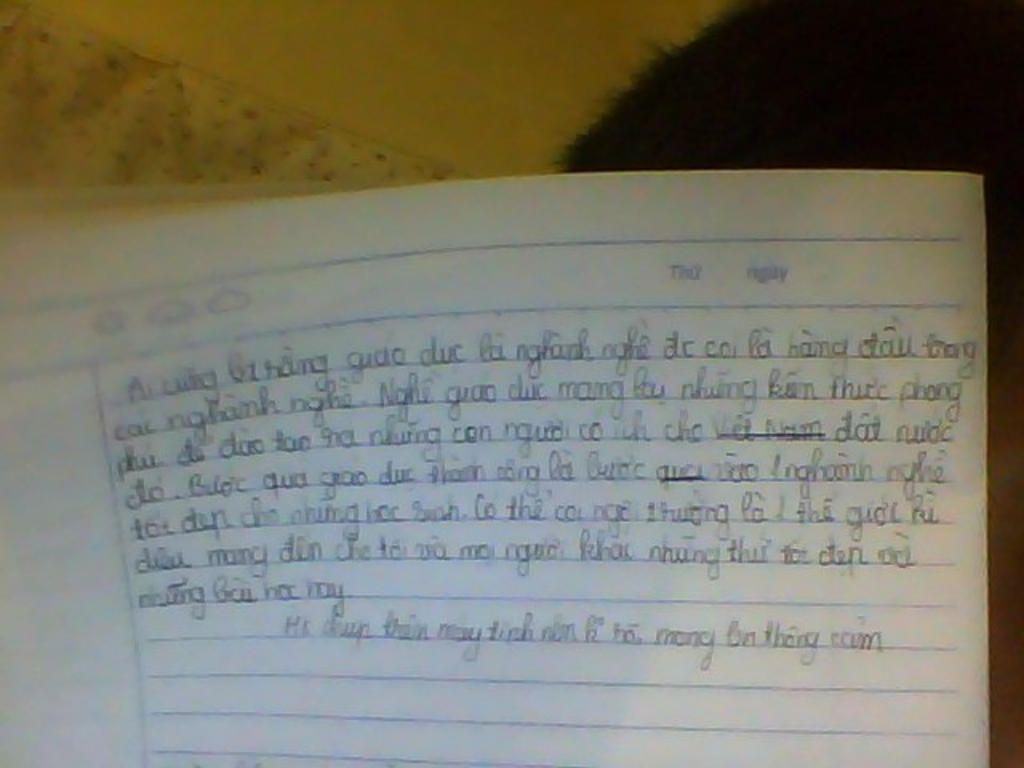 Thứ ngày
Ai cũng biết rằng giáo dục là nghành nghề đc coi là hàng đầu trong
các nghành nghề. Nghề giáo dục mang lại những kiến thức phong
phú để đào tạo ra những con người có ích cho Việt Nam đất nước
đó. Bước qua giáo dục thành công là bước qua vào 1 nghành nghề
tốt đẹp cho những học sinh. Có thể coi ngôi trường là 1 thế giới kì
diệu mang đến cho tôi và mọi người khác những thứ tốt đẹp và
những bài học hay
Hi chụp trên máy tính nên k rõ, mong bn thông cảm